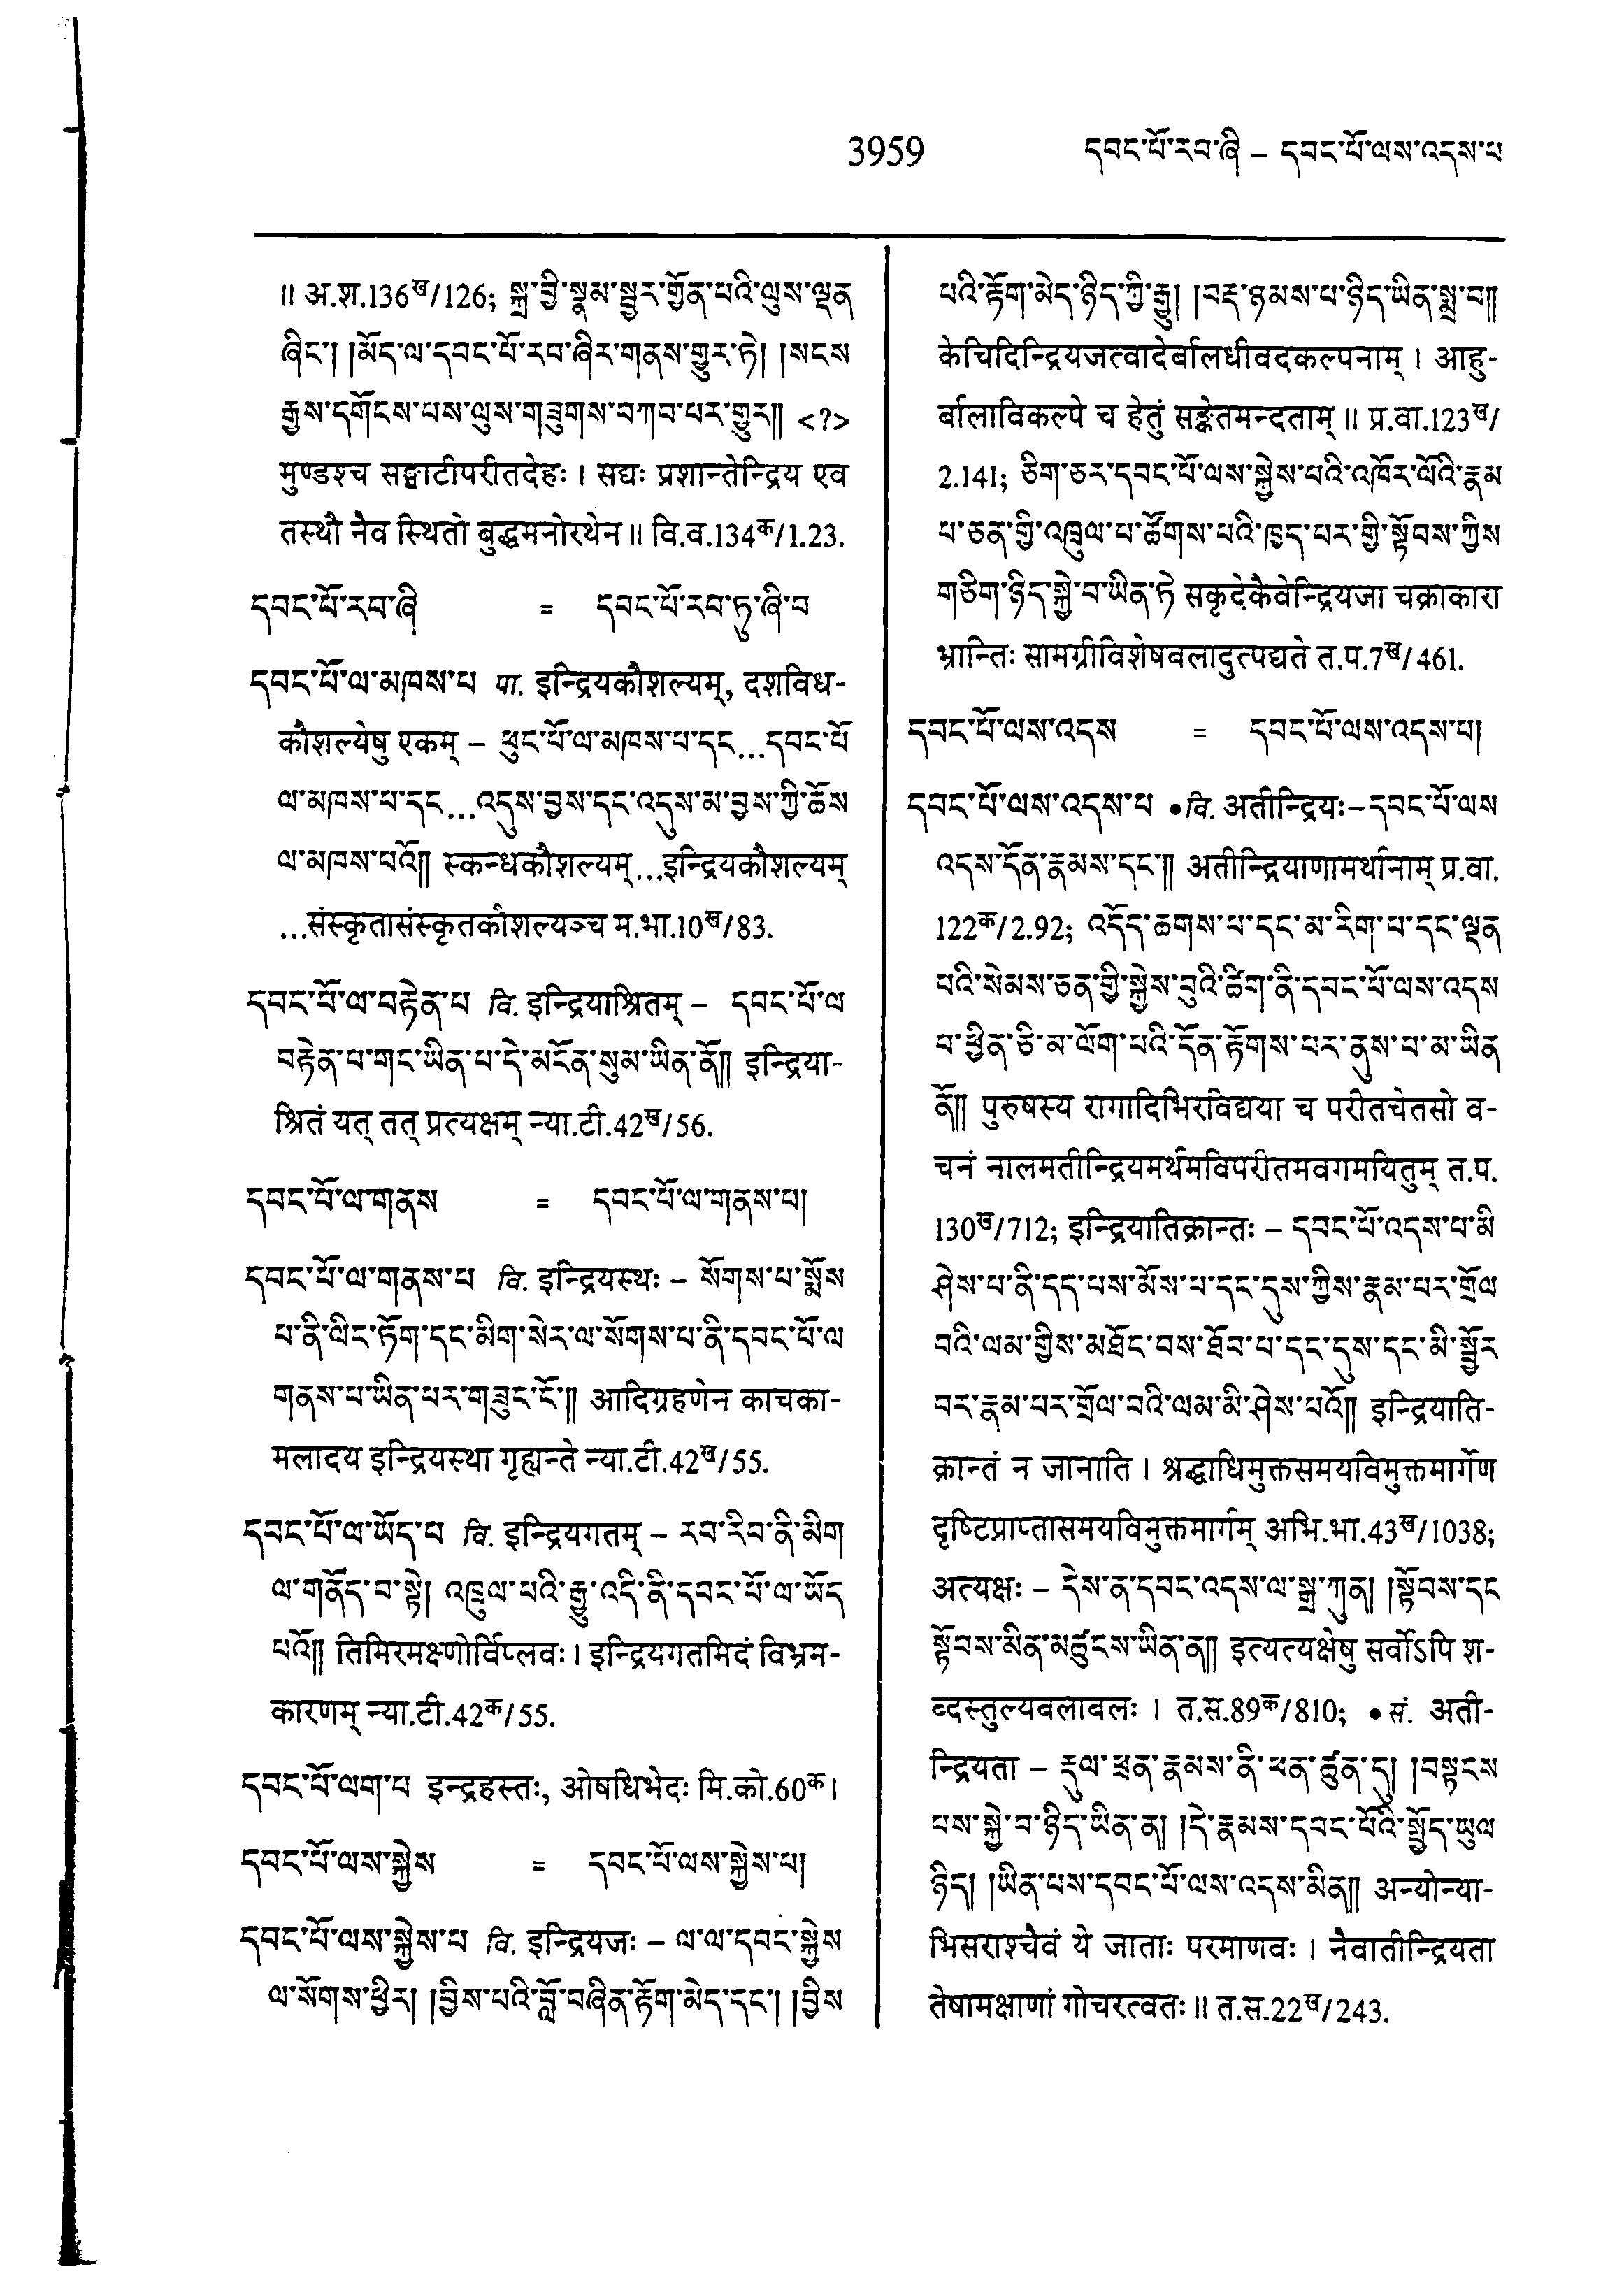 3959 དབང་པོ་རབ་ཞི – དབང་པོ་ལས་འདས་པ
॥ अ.श.136ख/126; སྐྲ་བྱི་སྣམ་སྦྱར་གྱོན་པའི་ལུས་ལྡན
ཞིང་། །མོད་ལ་དབང་པོ་རབ་ཞིར་གནས་གྱུར་ཏེ། །སངས
རྒྱས་དགོངས་པས་ལུས་གཟུགས་བཀབ་པར་གྱུར།། <?>
मुण्डश्च सङ्घाटीपरीतदेहः । सद्यः प्रशान्तेन्द्रिय एव
तस्थौ नैव स्थितो बुद्धमनोरथेन ॥ वि.व.134क/1.23.
དབང་པོ་རབ་ཞི = དབང་པོ་རབ་ཏུ་ཞི་བ
དབང་པོ་ལ་མཁས་པ पा. इन्द्रियकौशल्यम्, दशविध-
कौशल्येषु एकम् – ཕུང་པོ་ལ་མཁས་པ་དང...དབང་པོ
ལ་མཁས་པ་དང...འདུས་བྱས་དང་འདུས་མ་བྱས་ཀྱི་ཆོས
ལ་མཁས་པའོ།། स्कन्धकौशल्यम्...इन्द्रियकौशल्यम्
...संस्कृतासंस्कृतकौशल्यञ्च म.भा.10ख/83.
དབང་པོ་ལ་བརྟེན་པ वि. इन्द्रियाश्रितम् – དབང་པོ་ལ
བརྟེན་པ་གང་ཡིན་པ་དེ་མངོན་སུམ་ཡིན་ནོ།། इन्द्रिया-
श्रितं यत् तत् प्रत्यक्षम् न्या.टी.42ख/56.
དབང་པོ་ལ་གནས = དབང་པོ་ལ་གནས་པ།
དབང་པོ་ལ་གནས་པ वि. इन्द्रियस्थः – སོགས་པ་སྨོས
པ་ནི་ལིང་ཏོག་དང་མིག་སེར་ལ་སོགས་པ་ནི་དབང་པོ་ལ
གནས་པ་ཡིན་པར་གཟུང་ངོ་།། आदिग्रहणेन काचका-
मलादय इन्द्रियस्था गृह्यन्ते न्या.टी.42ख/55.
དབང་པོ་ལ་ཡོད་པ वि. इन्द्रियगतम् – རབ་རིབ་ནི་མིག
ལ་གནོད་བ་སྟེ། འཁྲུལ་པའི་རྒྱུ་འདི་ནི་དབང་པོ་ལ་ཡོད
པའོ།། तिमिरमक्ष्णोर्विप्लवः । इन्द्रियगतमिदं विभ्रम-
कारणम् न्या.टी.42क/55.
དབང་པོ་ལག་པ इन्द्रहस्तः, ओषधिभेदः मि.को.60क।
དབང་པོ་ལས་སྐྱེས = དབང་པོ་ལས་སྐྱེས་པ།
དབང་པོ་ལས་སྐྱེས་པ वि. इन्द्रियजः – ལ་ལ་དབང་སྐྱེས
ལ་སོགས་ཕྱིར། །བྱིས་པའི་བློ་བཞིན་རྟོག་མེད་དང་། །བྱིས
པའི་རྟོག་མེད་ཉིད་ཀྱི་རྒྱུ། །བརྡ་ཉམས་པ་ཉིད་ཡིན་སྨྲ་བ།།
केचिदिन्द्रियजत्वादेर्बालधीवदकल्पनाम् । आहु-
र्बालाविकल्पे च हेतुं सङ्केतमन्दताम् ॥ प्र.वा.123ख/
2.141; ཅིག་ཅར་དབང་པོ་ལས་སྐྱེས་པའི་འཁོར་ལོའི་རྣམ
པ་ཅན་གྱི་འཁྲུལ་པ་ཚོགས་པའི་ཁྱད་པར་གྱི་སྟོབས་ཀྱིས
གཅིག་ཉིད་སྐྱེ་བ་ཡིན་ཏེ सकृदेकैवेन्द्रियजा चक्राकारा
भ्रान्तिः सामग्रीविशेषबलादुत्पद्यते त.प.7ख/461.
དབང་པོ་ལས་འདས = དབང་པོ་ལས་འདས་པ།
དབང་པོ་ལས་འདས་པ •वि. अतीन्द्रियः–དབང་པོ་ལས
འདས་དོན་རྣམས་དང་།། अतीन्द्रियाणामर्थानाम् प्र.वा.
122क/2.92; འདོད་ཆགས་པ་དང་མ་རིག་པ་དང་ལྡན
པའི་སེམས་ཅན་གྱི་སྐྱེས་བུའི་ཚིག་ནི་དབང་པོ་ལས་འདས
པ་ཕྱིན་ཅི་མ་ལོག་པའི་དོན་རྟོགས་པར་ནུས་པ་མ་ཡིན
ནོ།། पुरुषस्य रागादिभिरविद्यया च परीतचेतसो व-
चनं नालमतीन्द्रियमर्थमविपरीतमवगमयितुम् त.प.
130ख/712; इन्द्रियातिक्रान्तः – དབང་པོ་འདས་པ་མི
ཤེས་པ་ནི་དད་པས་མོས་པ་དང་དུས་ཀྱིས་རྣམ་པར་གྲོལ
བའི་ལམ་གྱིས་མཐོང་བས་ཐོབ་པ་དང་དུས་དང་མི་སྦྱོར
བར་རྣམ་པར་གྲོལ་བའི་ལམ་མི་ཤེས་པའོ།། इन्द्रियाति-
क्रान्तं न जानाति । श्रद्धाधिमुक्तसमयविमुक्तमार्गेण
दृष्टिप्राप्तासमयविमुक्तमार्गम् अभि.भा.43ख/1038;
अत्यक्षः – དེས་ན་དབང་འདས་ལ་སྒྲ་ཀུན། །སྟོབས་དང
སྟོབས་མིན་མཚུངས་ཡིན་ན།། इत्यत्यक्षेषु सर्वोऽपि श-
ब्दस्तुल्यबलाबलः । त.स.89क/810; • सं. अती-
न्द्रियता – རྡུལ་ཕྲན་རྣམས་ནི་ཕན་ཚུན་དུ། །བསྟངས
པས་སྐྱེ་བ་ཉིད་ཡིན་ན། །དེ་རྣམས་དབང་པོའི་སྤྱོད་ཡུལ
ཉིད། །ཡིན་པས་དབང་པོ་ལས་འདས་མིན།། अन्योन्या-
भिसराश्चैवं ये जाताः परमाणवः । नैवातीन्द्रियता
तेषामक्षाणां गोचरत्वतः ॥ त.स.22ख/243.